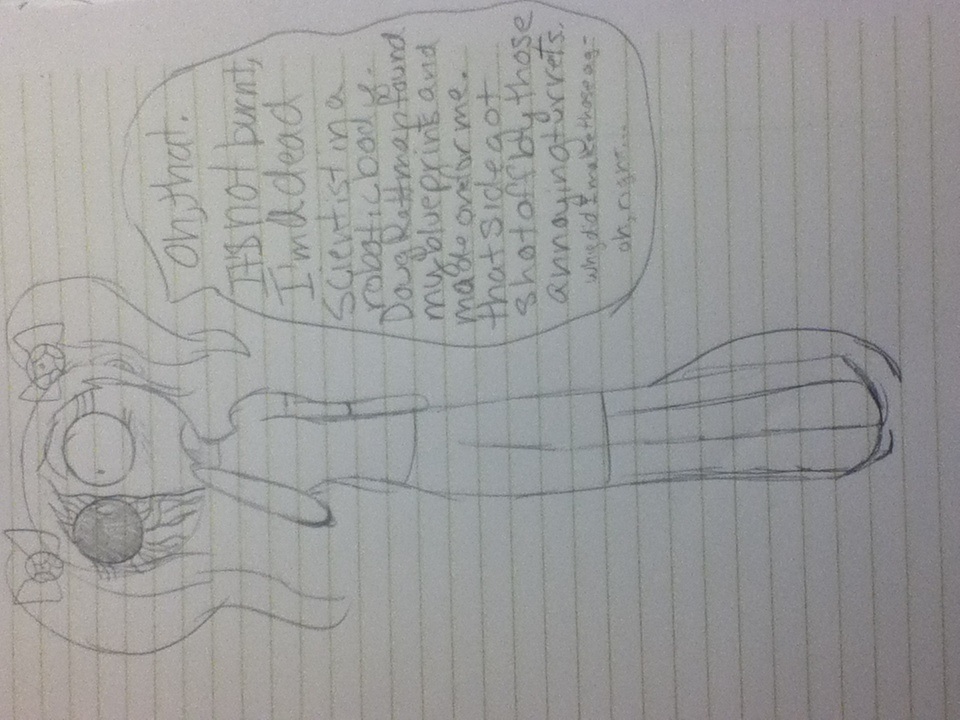 Oh, that.
It's not burnt,
I'm a dead
Scientist in a
robotic body.
Doug Rattmann found
my blueprints and
made one for me.
that side got
shot off by those
annoying turrets.
why did I make those ag-
oh, right...